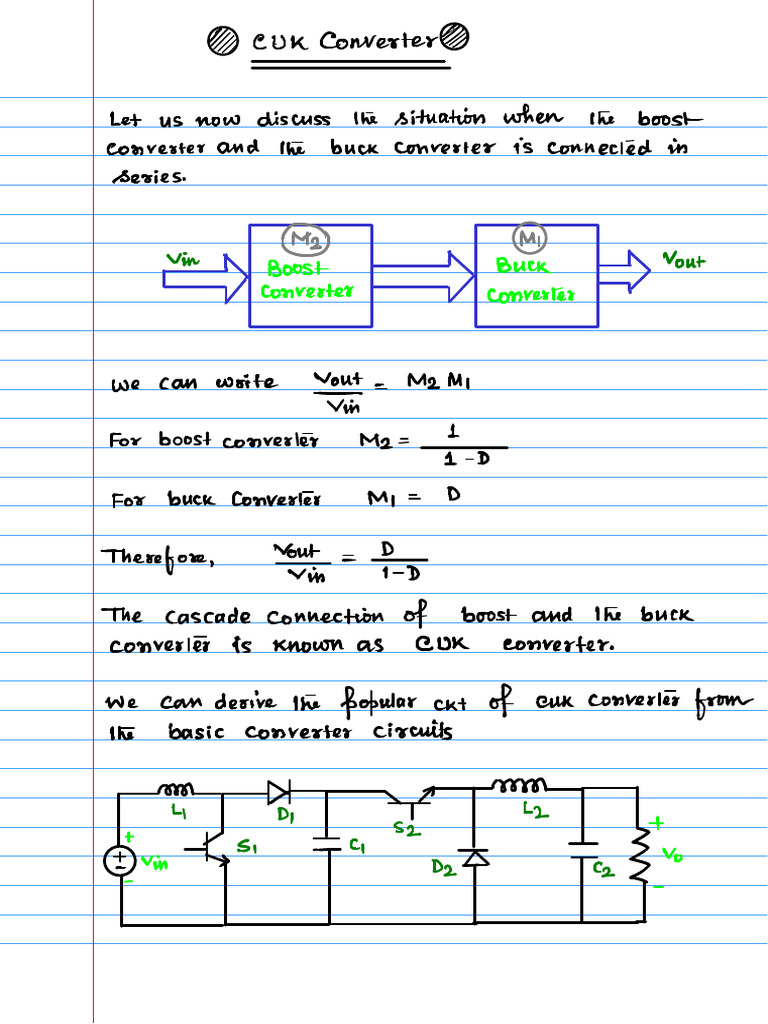 CUK Converter
Let us now discuss the situation when the boost
converter and the buck converter is connected in
series.
Vin
M2
Boost
Converter
M1
Buck
Converter
Vout
We can write Vout/Vin = M2 M1
For boost converter M2 = 1/(1-D)
For buck Converter M1 = D
Therefore, Vout/Vin = D/(1-D)
The cascade connection of boost and the buck
converter is known as CUK converter.
We can derive the popular ckt of cuk converter from
the basic converter circuits
L1
D1
S2
L2
+
Vin
-
S1
C1
D2
C2
+
Vo
-